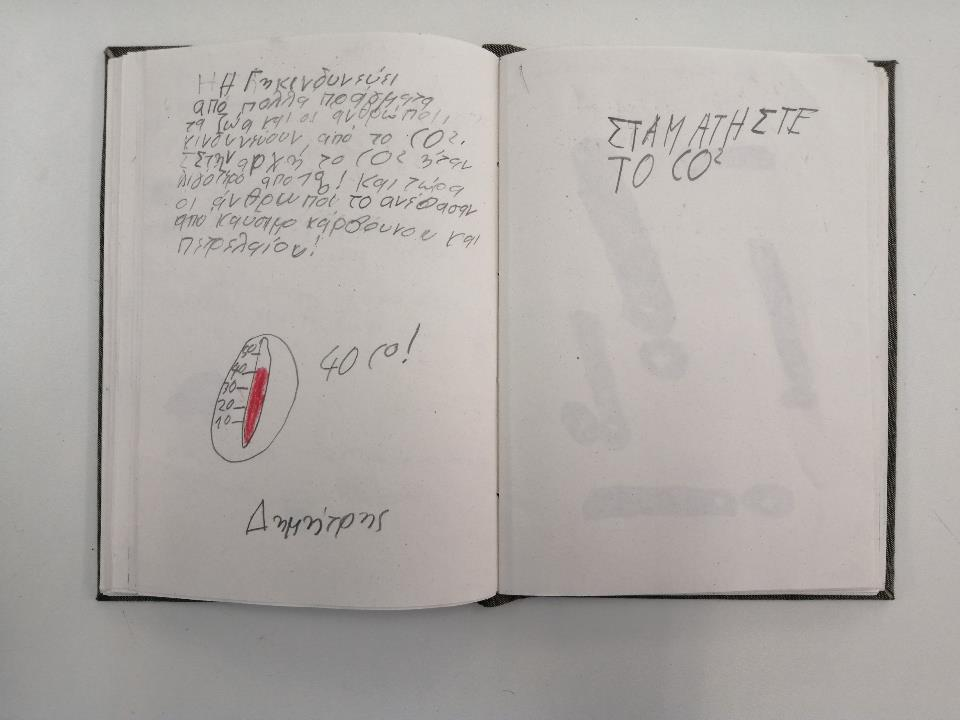 Η Η Γηκινδυνεύει
από πολλα πράγματα
τα ζώα και οι ανθρώποι,
κινδυνεύουν από το CO².
Σ Στην αρχη, το CO² ήταν
λιγοτερο απο 1%! Και τώρα
οι άνθρωποι το ανέβασαν
απο καύσιμο κάρβουνου και
πετρελαίου!
50
40
30
20
10
40 CO!
Δημήτρης
ΣΤΑΜΑΤΗΣΤΕ
ΤΟ CO²